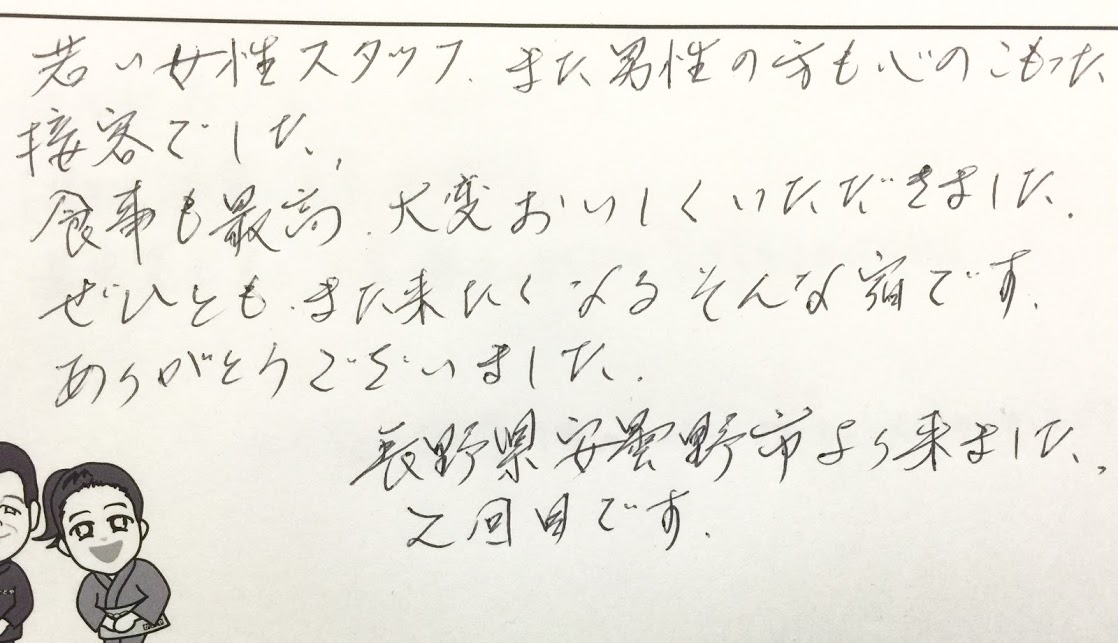 若い女性スタッフ、また男性の方も心のこもった
接客でした、
食事も最高、大変おいしくいただきました。
ぜひとも、また来たくなるそんな宿です。
ありがとうございました。
長野県安曇野市より来ました、
2回目です。